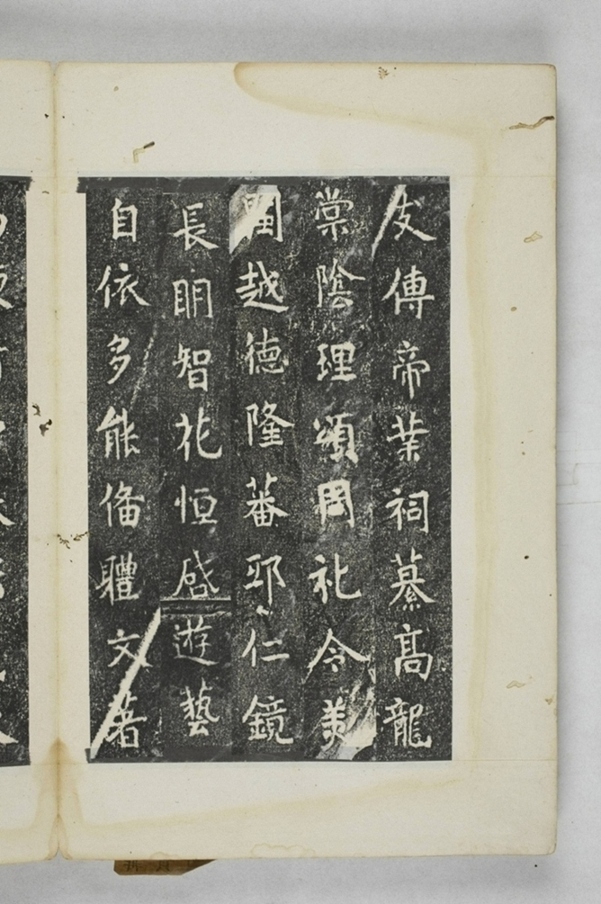 友傳帝業祠纂高龍
棠陰理頌周礼令美
閩越德隆蕃邸仁鏡
長明智花恒啓遊藝
自依多能備體文著